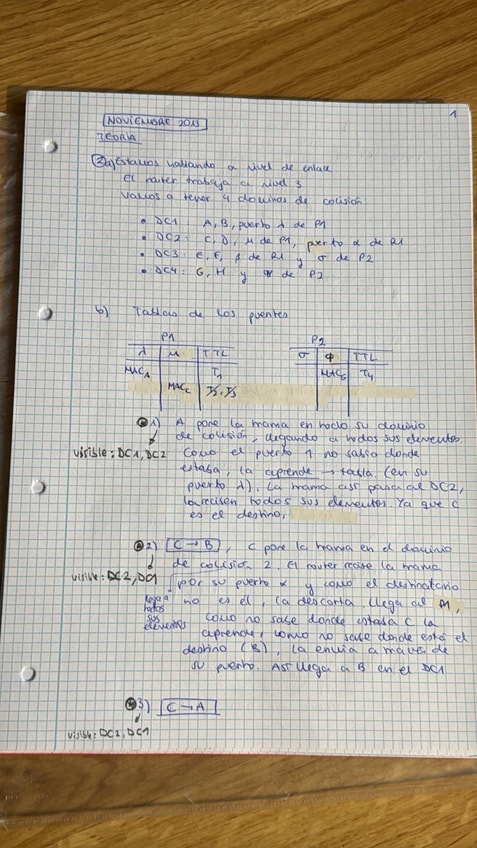 1
NOVIEMBRE 2015
TEORIA
2a) Estamos hablando a nivel de enlace
El router trabaja a nivel 3
Vamos a tener 4 dominios de colisión:
• DC1: A, B, puerto λ de P1
• DC2: C, D, μ de P1, puerto α de R1
• DC3: E, F, β de R1 y σ de P2
• DC4: G, H y φ de P2
b) Tablas de los puentes
P1 P2
λ μ TTL σ φ TTL
MAC_A T1 MAC_G T4
MAC_C T2, T3
1) A pone la trama en todo su dominio
de colisión, llegando a todos sus elementos.
visible: DC1, DC2 Como el puerto 1 no sabía donde
estaba, la aprende → tabla (en su
puerto λ). La trama así pasa al DC2,
la reciben todos sus elementos. Ya que C
es el destino,
2) C → B, C pone la trama en el dominio
de colisión 2, el router recibe la trama
visible: DC2, DC1 por su puerto α y como el destinatario
llega a todos sus elementos no es él, la descarta. Llega al P1,
como no sabe donde estaba C la
aprende, como no sabe donde está el
destino (B), la envía a través de
su puerto. Así llega a B en el DC1
3) C → A
visible: DC2, DC1